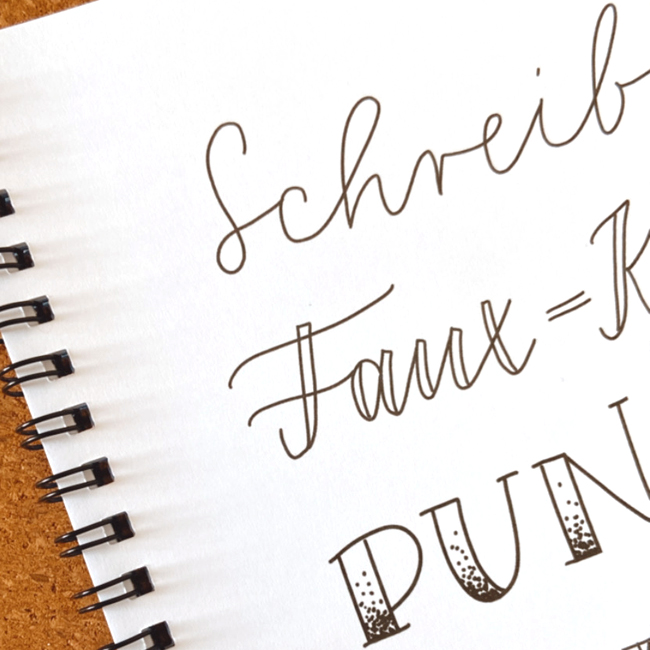 Schreib
Faux=K
PUN